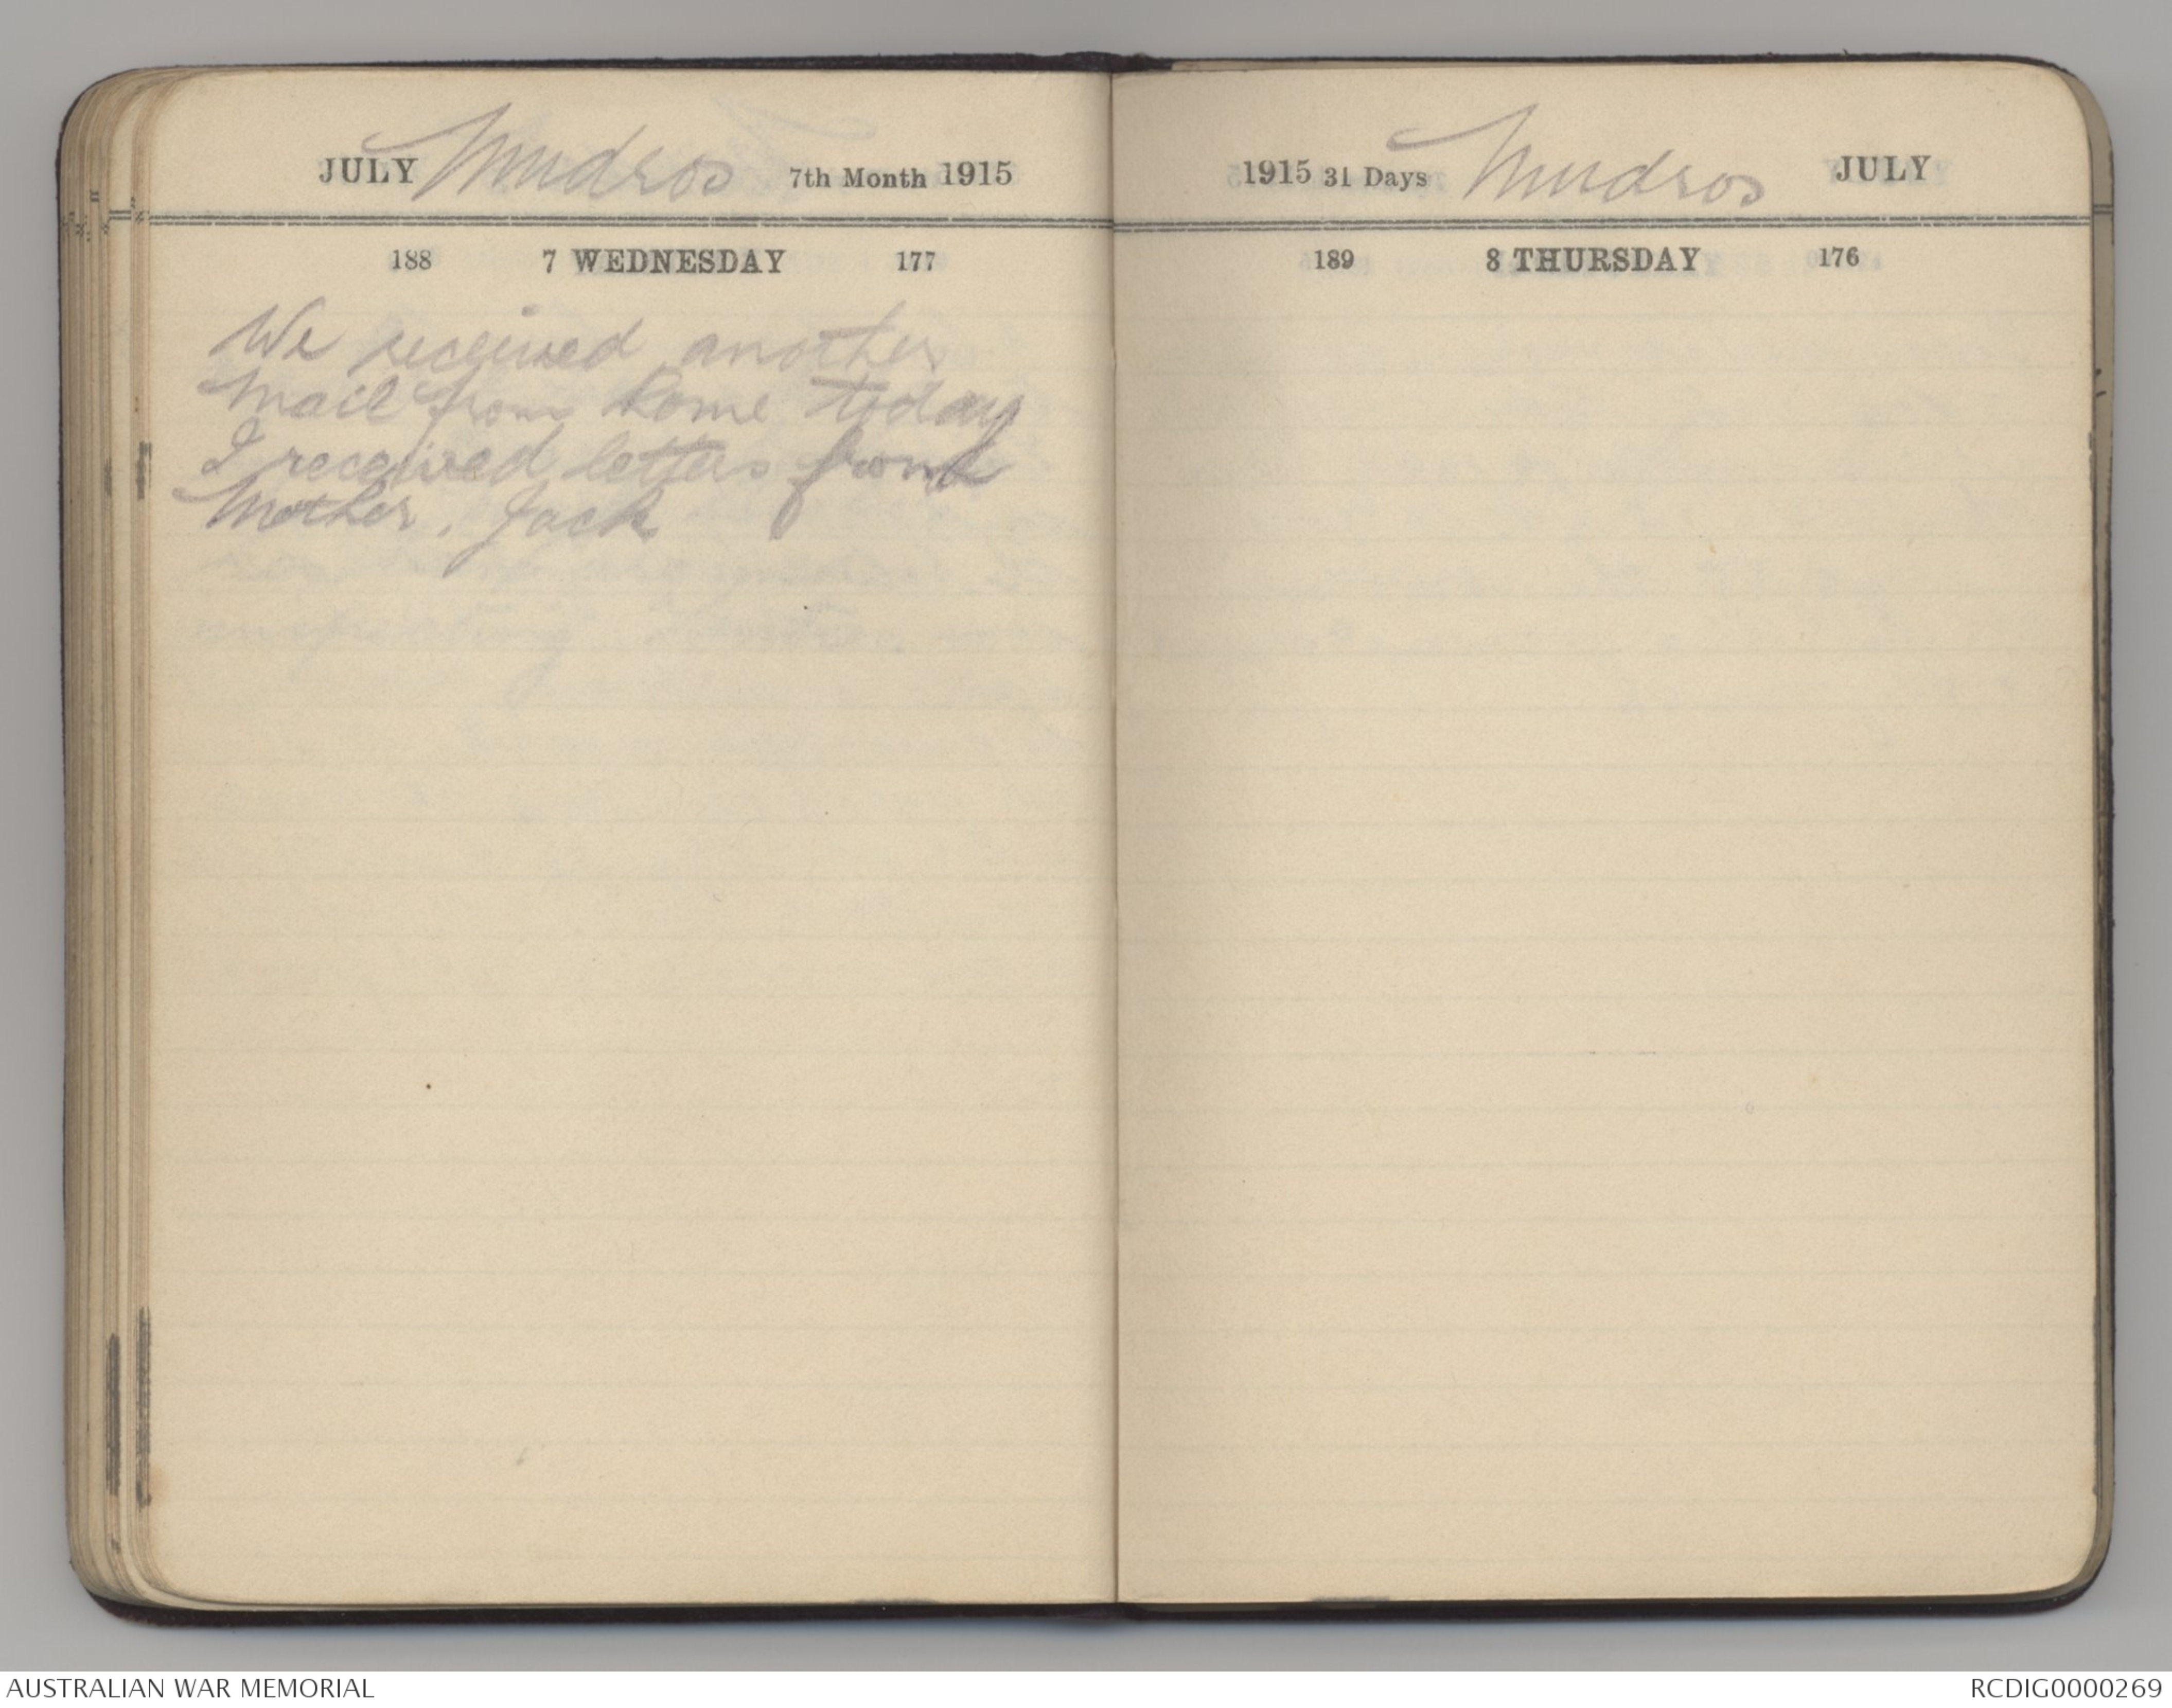 JULY Mudros 7th Month 1915
188 7 WEDNESDAY 177
We received another
Mail from home today
I received letters from
Mother, Jack
1915 31 Days Mudros JULY
189 8 THURSDAY 176
AUSTRALIAN WAR MEMORIAL
RCDIG0000269